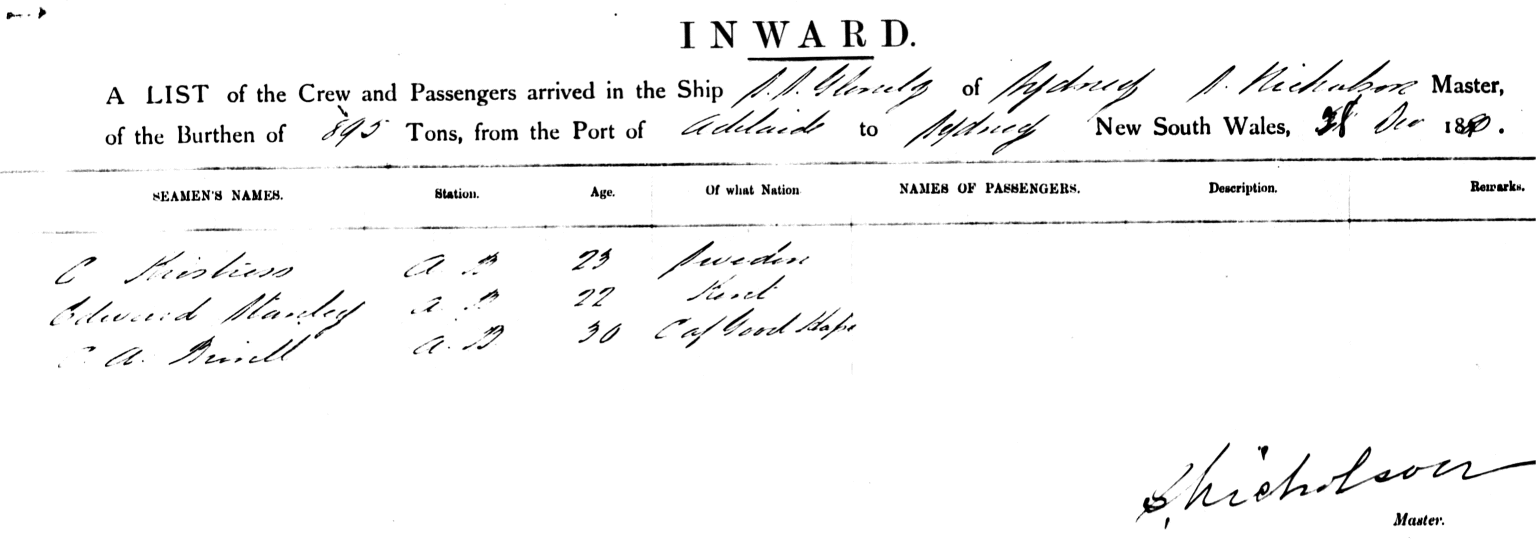 INWARD.
A LIST of the Crew and Passengers arrived in the Ship S.S. Glenelg of Sydney S. Nicholson Master,
of the Burthen of 895 Tons, from the Port of Adelaide to Sydney New South Wales, Dec 18
SEAMEN'S NAMES. Station. Age. Of what Nation NAMES OF PASSENGERS. Description. Remarks.
C A B 23 Sweden
Edward Stanley A. B 22 Kent
C. A. A. B 30 C of Good Hope
S Nicholson
Master.